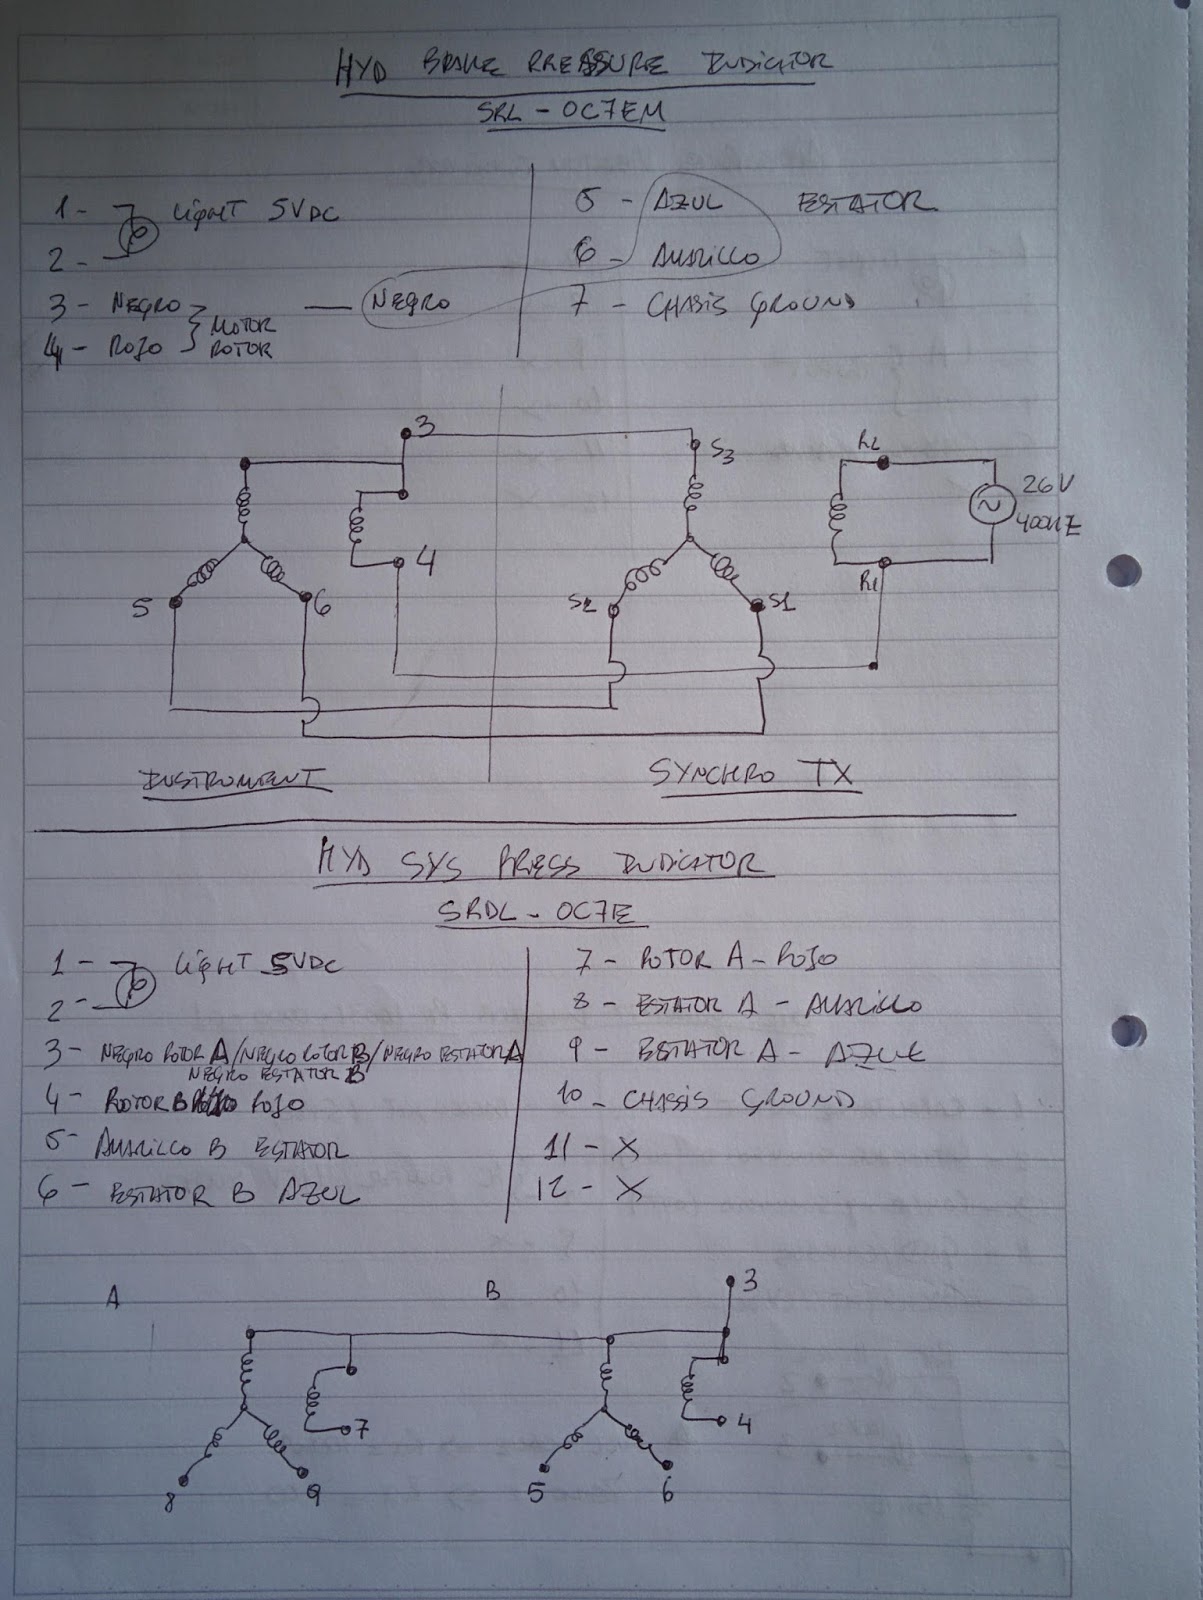 HYD BRAKE PRESSURE INDICATOR
SRL - OC7EM
1 - LIGHT 5VDC
2 -
3 - NEGRO
4 - ROJO
MOTOR
ROTOR
NEGRO
5 - AZUL ESTATOR
6 - AMARILLO
7 - CHASIS GROUND
3
4
5
6
S3
S2
S1
R2
R1
26V
400HZ
INSTRUMENT
SYNCHRO TX
HYD SYS PRESS INDICATOR
SRDL - OC7E
1 - LIGHT 5VDC
2 -
3 - NEGRO ROTOR A/NEGRO ROTOR B/NEGRO ESTATOR A
NEGRO ESTATOR B
4 - ROTOR B ROJO
5 - AMARILLO B ESTATOR
6 - ESTATOR B AZUL
7 - ROTOR A - ROJO
8 - ESTATOR A - AMARILLO
9 - ESTATOR A - AZUL
10 - CHASSIS GROUND
11 - X
12 - X
A
B
3
7
4
8
9
5
6